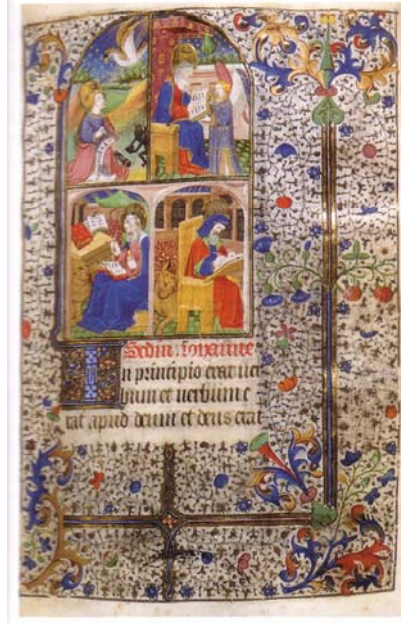 Scdm. Iohanne
n principio erat uer
bum et uerbum e
rat apud deum et deus erat